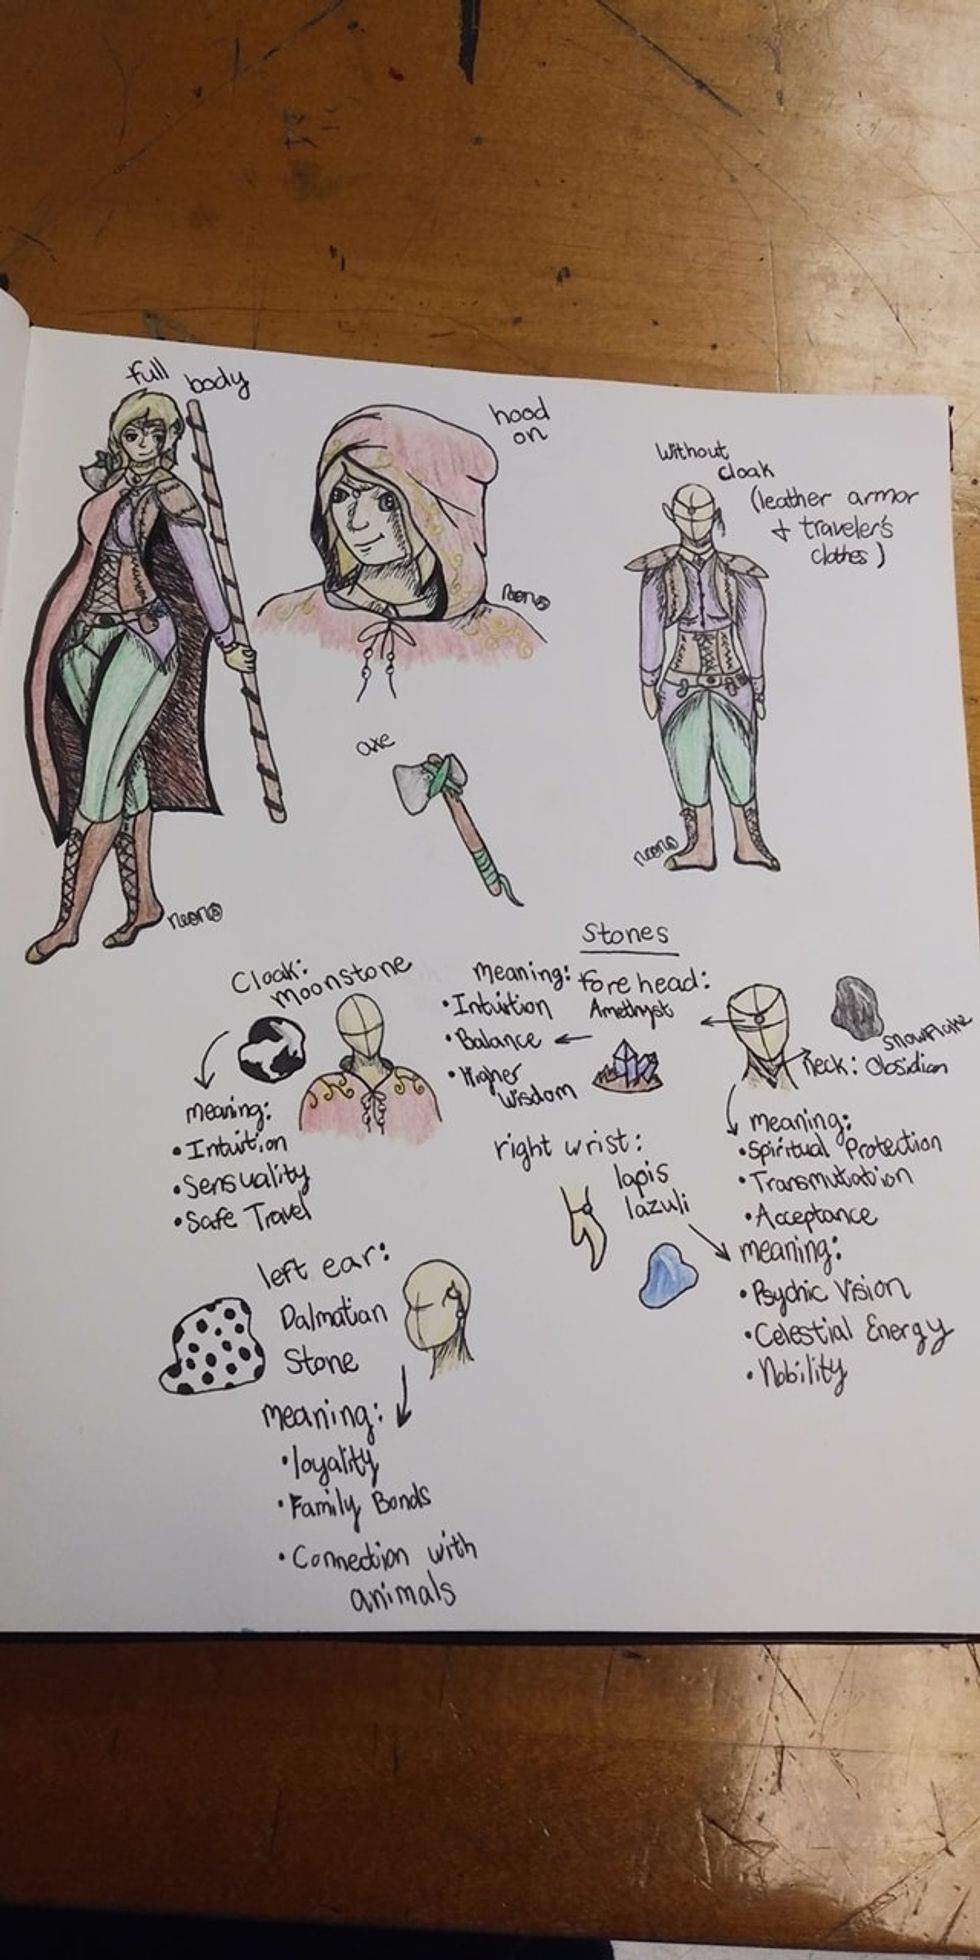 full body
hood
on
Without
cloak
(leather armor
+ traveler's
clothes)
neon
axe
neon
Stones
Cloak:
Moonstone
meaning:
• Intuition
• Sensuality
• Safe Travel
meaning:
• Intuition
• Balance
• Higher
Wisdom
forehead:
Amethyst
snowflake
neck: Obsidian
meaning:
• Spiritual Protection
• Transmutation
• Acceptance
right wrist:
lapis
lazuli
meaning:
• Psychic Vision
• Celestial Energy
• Nobility
left ear:
Dalmatian
Stone
meaning:
• loyality
• Family Bonds
• Connection with
animals